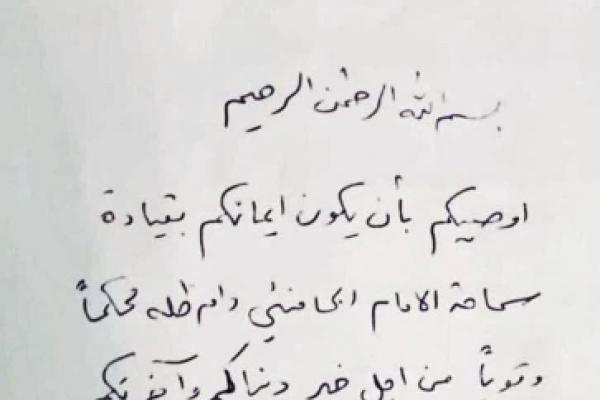 بسم الله الرحمن الرحيم
اوصيكم بأن يكون ايمانكم بقيادة
سماحة الامام الخامنئي دام ظله محكماً
وقوياً من اجل خير دنياكم وآخرتكم